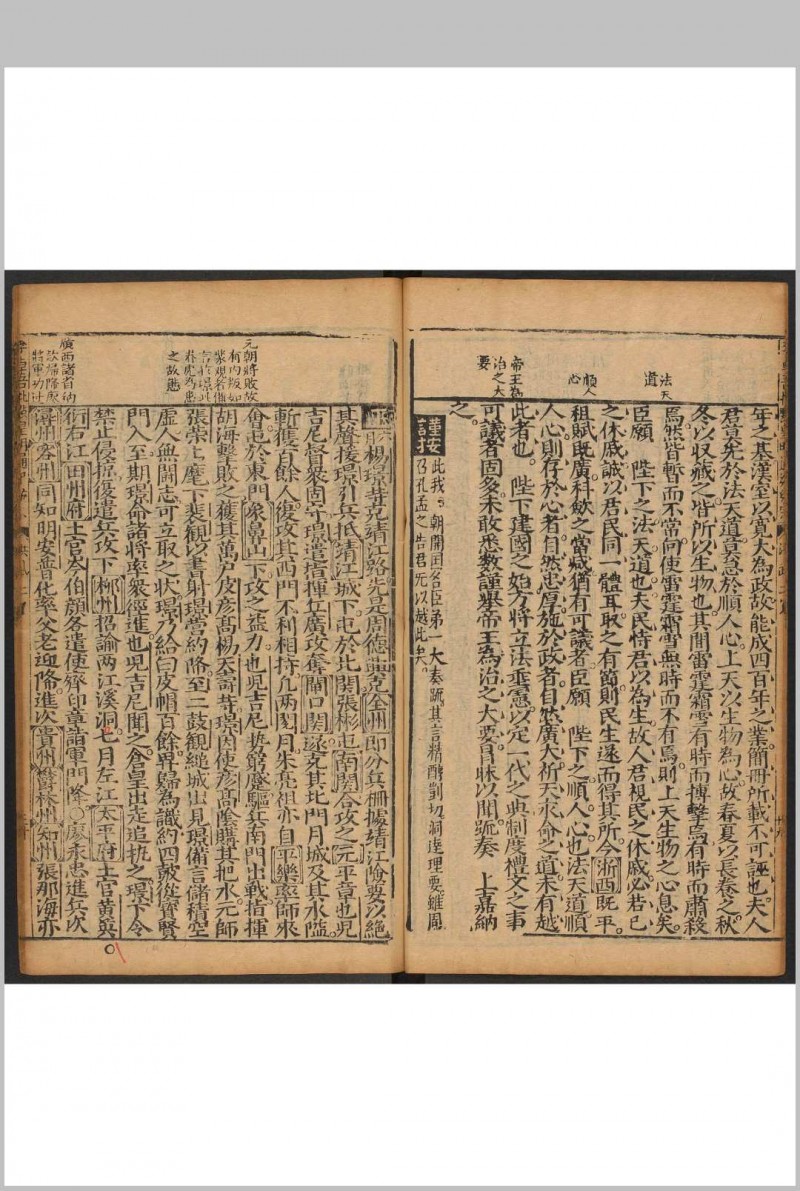 年之基漢室以寬大為政故能成四百年之業簡冊所載不可誣也夫人
君莫先於法天道莫急於順人心上天以生物為心故春夏以長養之秋
冬以收藏之皆所以生物也其間雷霆霜雪有時而搏擊焉有時而肅殺
焉然皆暫而不常向使雷霆霜雪無時而不有焉則上天生物之心息矣
臣願 陛下之法天道也夫民恃君以為生故人君視民之休戚必若已
之休戚誠以君民同一體耳取之有節則民生遂而得其所今浙西既平
租賦既廣科歛之當减猶有可議者臣願 陛下之順人心也法天道順
人心則存於心者自然忠厚施於政者自然廣大祈天永命之道未有越
此者也 陛下建國之始方將立法垂憲以定一代之典制度禮文之事
可議者固多未敢悉數謹舉帝王為治之大要冒昧以聞疏奏 上嘉納
之
謹按
此我 朝開囯名臣弟一大奏疏其言精醇剴切洞達理要雖周
乃孔孟之告君无以越此矣
法天
道
順人
心
帝王為
治之大
要
六月楊璟等克靖江路先是周德興克全州即分兵柵據靖江險要以絕
其聲援璟引兵抵靖江城下屯於北関張彬屯南関合攻之元平章也兒
吉尼督衆固守璟遣指揮丘廣攻奪閘口関遂克其北門月城及其水隘
斬獲百餘人復攻其西門不利相持几两閱月朱亮祖亦自平樂率師來
會屯於東門象鼻山下攻之益力也兒吉尼勢窮蹙驅兵南門出戰指揮
胡海擊敗之獲其萬戶皮彥高楊天壽等璟因使彥高陰購其把水元師
張榮上麾下裴觀以書射璟營約降至二鼓觀縋城出見璟備言儲積空
虛人無鬪志可立取之狀璟乃給白皮帽百餘畀歸為識約四鼓從寶賢
門入至期璟命諸將率衆徑進也兒吉尼聞之倉皇出走追執之璟下令
禁止侵掠復遣兵攻下郴州招諭两江溪洞七月左江太平府土官黃英
衍右江田州府土官岑伯顏各遣使齎印章詣軍門降〇廖永忠進兵次
潯州容州同知明安普化率父老迎降進次貴州鬱林州知州張那海亦
元朝將敗故
有内叛如
裴觀者備
言於璟此
朴彪為患
之故也
廣西諸省納
欵掃降原
將軍功壮